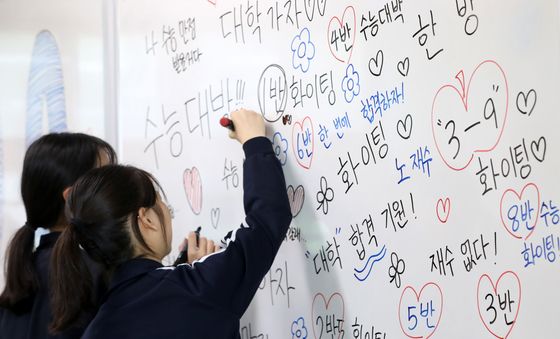 나 수능 만점
받을거다
대학 가자
4반
수능대박
화이팅
한 방
수능 대박!!!
1반 화이팅
합격하자!
6반 한번에
화이팅
노 재수
"3-9"
화이팅
수능
"대학" 합격 기원!
재수 없다!
8반 수능
화이팅!
5반
3반
2반
화이팅